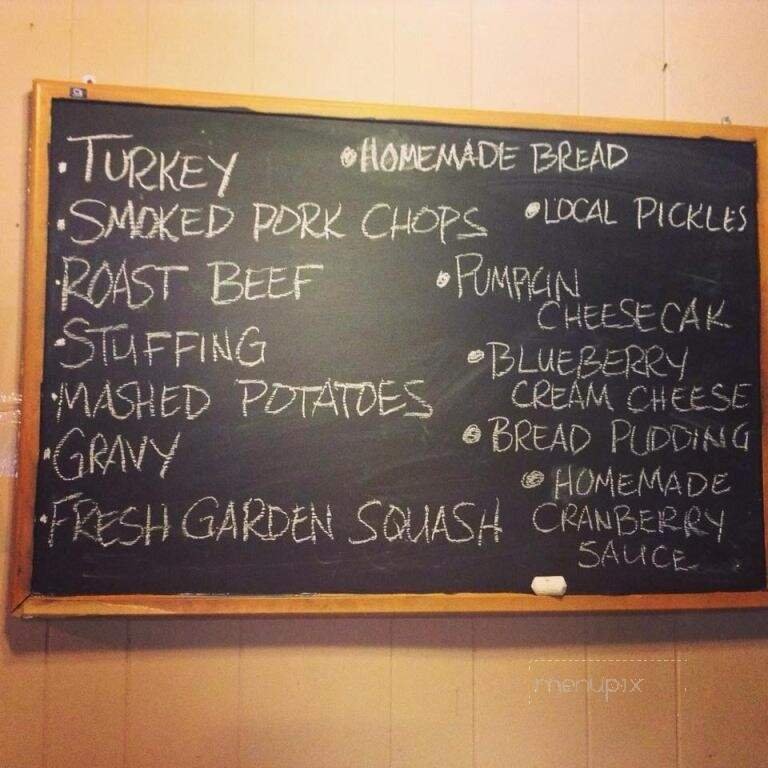 • TURKEY
• SMOKED PORK CHOPS
• ROAST BEEF
• STUFFING
• MASHED POTATOES
• GRAVY
• FRESH GARDEN SQUASH
• HOMEMADE BREAD
• LOCAL PICKLES
• PUMPKIN
CHEESECAK
• BLUEBERRY
CREAM CHEESE
• BREAD PUDDING
• HOMEMADE
CRANBERRY
SAUCE
menupix